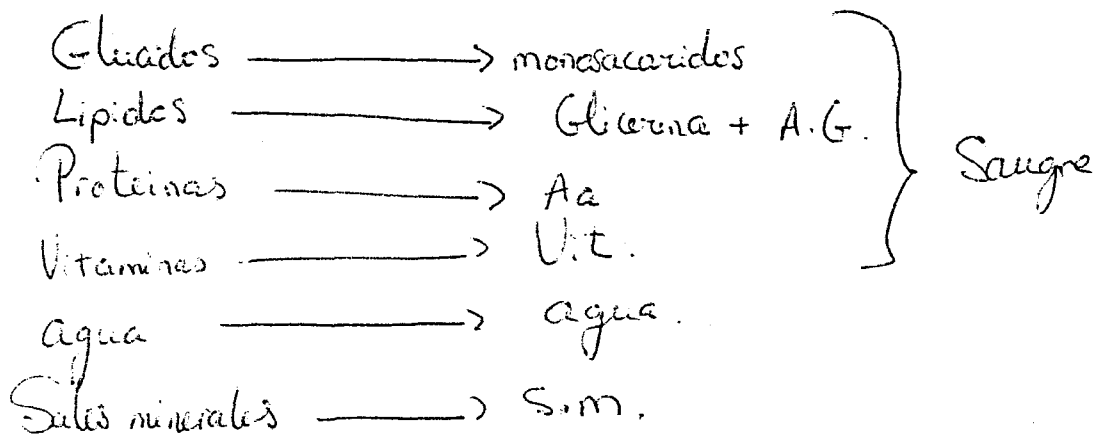 Glucidos → monosacaridos
Lipidos → Glicerina + A.G.
Proteinas → Aa
Vitaminas → Vit.
agua → agua.
Sales minerales → S.m.
Sangre